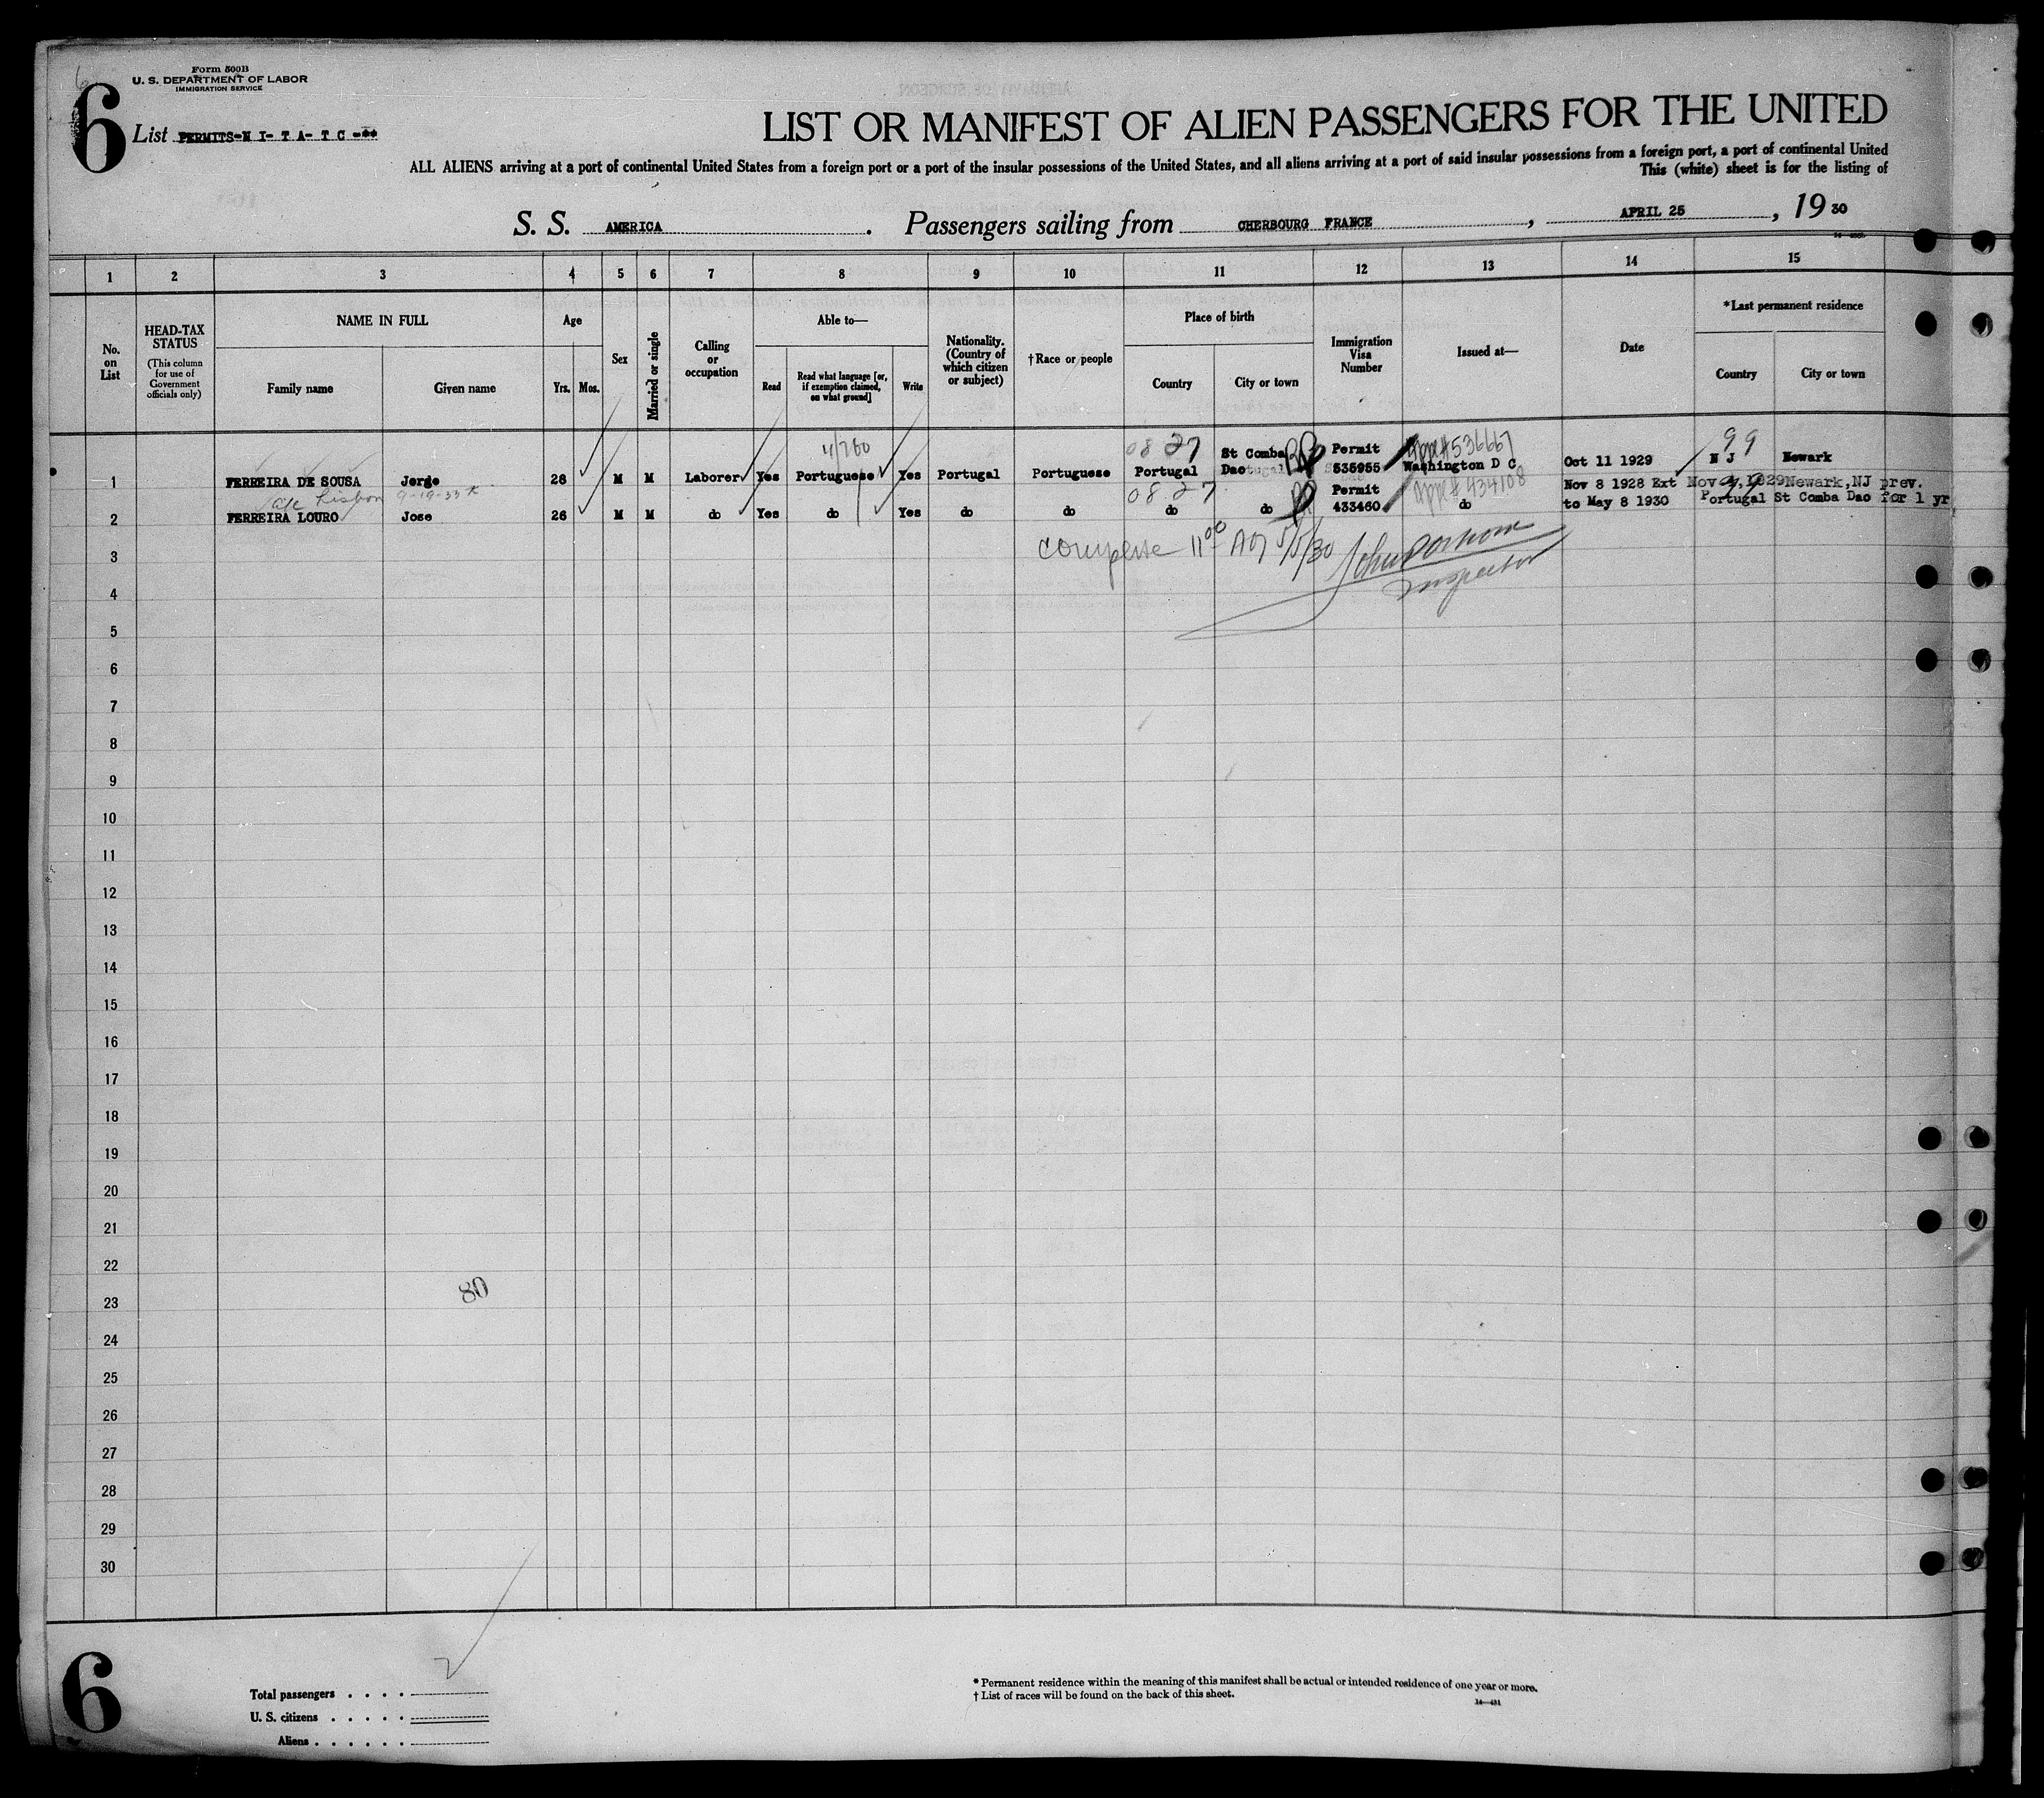 6
Form 500B
U. S. DEPARTMENT OF LABOR
IMMIGRATION SERVICE
6 List PERMITS-N I- T A- T C -**
LIST OR MANIFEST OF ALIEN PASSENGERS FOR THE UNITED
ALL ALIENS arriving at a port of continental United States from a foreign port or a port of the insular possessions of the United States, and all aliens arriving at a port of said insular possessions from a foreign port, a port of continental United
This (white) sheet is for the listing of
S. S. AMERICA. Passengers sailing from CHERBOURG FRANCE, APRIL 25, 19 30
1 2 3 4 5 6 7 8 9 10 11 12 13 14 15
No. on List
HEAD-TAX STATUS
(This column for use of Government officials only)
NAME IN FULL
Family name Given name
Age
Yrs. Mos.
Sex
Married or single
Calling or occupation
Able to—
Read
Read what language [or, if exemption claimed, on what ground]
Write
Nationality. (Country of which citizen or subject)
†Race or people
Place of birth
Country City or town
Immigration Visa Number
Issued at—
Date
*Last permanent residence
Country City or town
4/260 08 27 St Comba Permit 536667 99
1 FERREIRA DE SOUSA Jorge 28 M M Laborer Yes Portuguese Yes Portugal Portuguese Portugal Dao 535955 Washington D C Oct 11 1929 N J Newark
Lisbon 9-19-33 08 27 Permit 434108 Nov 8 1928 Ext Nov 1929 99 Newark, NJ prev.
2 FERREIRA LOURO Jose 26 M M do Yes do Yes do do do do 433460 do to May 8 1930 Portugal St Comba Dao for 1 yr
complete 11 00 5/5/30
Inspector
3
4
5
6
7
8
9
10
11
12
13
14
15
16
17
18
19
20
21
22
80
23
24
25
26
27
28
29
30
6
2
Total passengers . . . .
U. S. citizens . . . . .
Aliens . . . . . .
* Permanent residence within the meaning of this manifest shall be actual or intended residence of one year or more.
† List of races will be found on the back of this sheet.
14—431